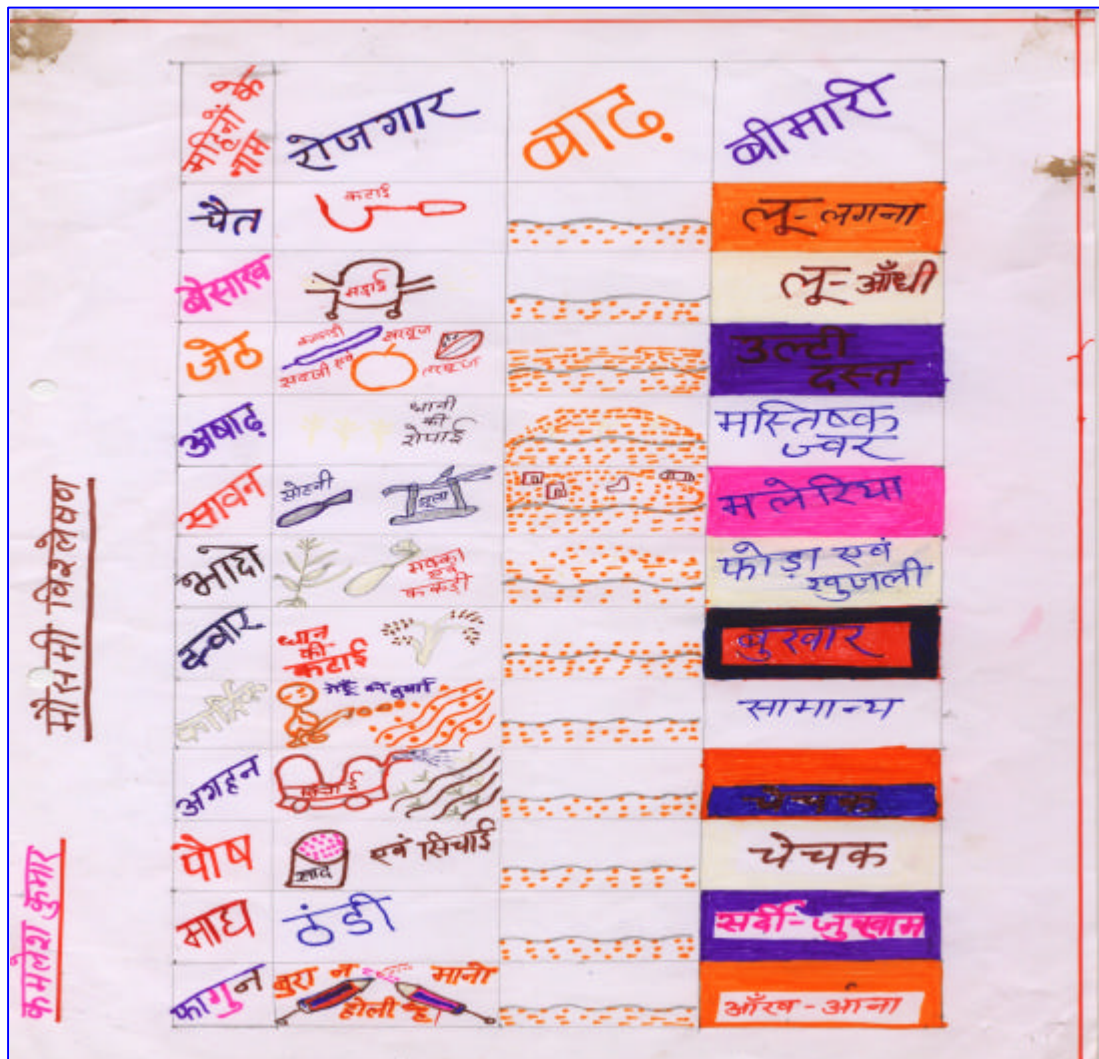 महिनों के नाम
रोजगार
बाढ़
बीमारी
चैत
कटाई
लू-लगना
बैसाख
मड़ाई
लू-आँधी
जेठ
ककड़ी
खरबूज
सबजी एवं
तरबूज
उल्टी
दस्त
अषाढ़
धानी
की
रोपाई
मस्तिष्क
ज्वर
सावन
सोहनी
झूला
मलेरिया
भादो
मक्का
एवं
ककड़ी
फोड़ा एवं
खुजली
क्वार
धान
की
कटाई
बुखार
कार्तिक
गेहूँ की बुआई
सामान्य
अगहन
सिंचाई
चेचक
पौष
खाद
एवं सिचाई
चेचक
माघ
ठंडी
सर्दी-जुखाम
फागुन
बुरा न मानो
होली है
आँख-आना
मौसमी विश्लेषण
कमलेश कुमार